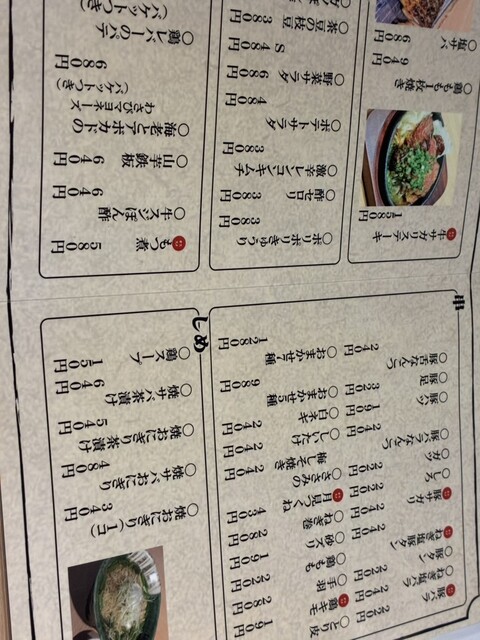 串
豚バラ 220円
ねぎ塩バラ 220円
豚タン
ねぎ塩タン 240円
豚サガリ 240円
ガツ 220円
豚ハラなんこつ 240円
豚ハツ 190円
豚足 320円
豚舌なんこつ 240円
とり皮 190円
鶏キモ
手羽
鶏もも
砂ズリ
ねぎ巻 280円
月見つくね 430円
ささみの
梅しそ焼き 240円
しいたけ 240円
白ネギ 240円
おまかせ5種 980円
おまかせ7種 1280円
しめ
焼おにぎり(1コ) 340円
焼サバおにぎり 480円
焼おにぎり茶漬け 540円
焼サバ茶漬け 640円
鶏スープ 150円
牛サガリステーキ 1580円
鶏もも一枚焼き 940円
塩サバ 680円
ポリポリきゅうり 380円
酢セロリ 380円
激辛レンコンキムチ 380円
ポテトサラダ 480円
野菜サラダ 680円
S 480円
茶の枝豆 380円
もつ煮 580円
牛スジぽん酢 640円
山芋鉄板 640円
海老とアボカドの
わさびマヨネーズ
(バケットつき) 680円
鶏レバーのパテ
(バケットつき)